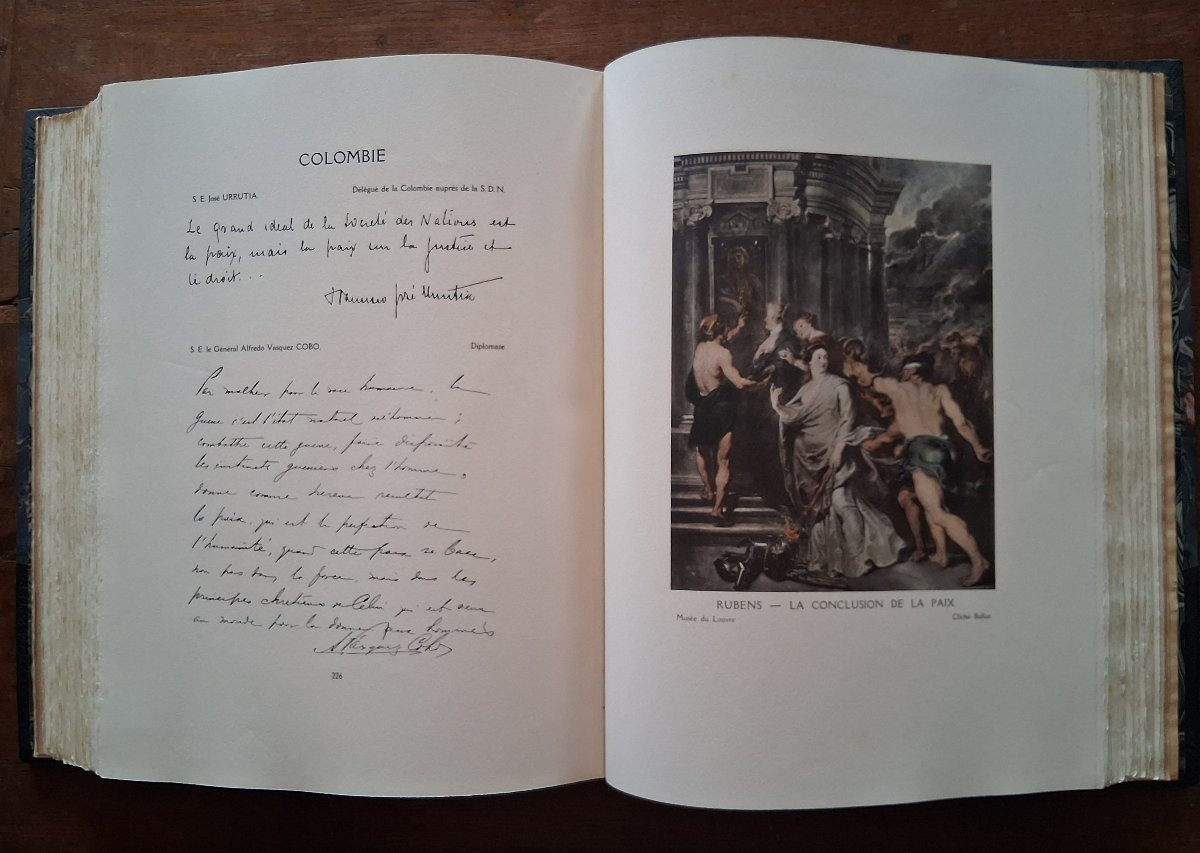 COLOMBIE
S. E. José URRUTIA. Délégué de la Colombie auprès de la S. D. N.
Le Grand ideal de la Societé des Nations est
la paix, mais la paix sur la Justice et
le droit...
José Urrutia
S. E. le Général Alfredo Vasquez COBO. Diplomate
Par malheur pour la race humaine, la
guerre c'est l'état naturel
combattre cette guerre, faire
les guerriers chez l'homme,
donne comme resultat
la paix, qui est la perfection de
l'humanité, quand cette paix se base,
non pas dans la force, mais dans les
principes chrétiens de Celui qui est venu
au monde pour la donner aux hommes
A Vásquez Cobo
226
RUBENS — LA CONCLUSION DE LA PAIX
Musée du Louvre Cliché Bulloz